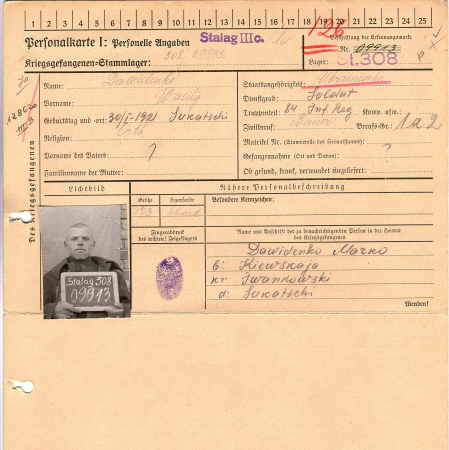 1 2 3 4 5 6 7 8 9 10 11 12 13 14 15 16 17 18 19 20 21 22 23 24 25
Personalkarte I: Personelle Angaben
Stalag IIIc.
126
Beschriftung der Erkennungsmarke
Nr. 09913
Kriegsgefangenen-Stammlager: 308 09913
Lager: St. 308
Des Kriegsgefangenen
Name: Dawidenko
Vorname: Wasilij
Geburtstag und -ort: 30/I-1921 Sukatschi
Religion: Orth
Vorname des Vaters: ?
Familienname der Mutter:
Staatsangehörigkeit: Ukrainische
Dienstgrad: Soldat
Truppenteil: 84 Inf. Reg Komp. usw.:
Zivilberuf: Bauer Berufs-Gr.: 1a2
Matrikel Nr. (Stammrolle des Heimatstaates):
Gefangennahme (Ort und Datum): ?
Ob gesund, krank, verwundet eingeliefert:
Lichtbild
Nähere Personalbeschreibung
Größe
Haarfarbe
Besondere Kennzeichen:
Fingerabdruck
des rechten! Zeigefingers
Name und Anschrift der zu benachrichtigenden Person in der Heimat
des Kriegsgefangenen
Dawidenko Marko
Kiewskaja
Iwankowski
d: Sukatschi
Wenden!
Stalag 308
09913